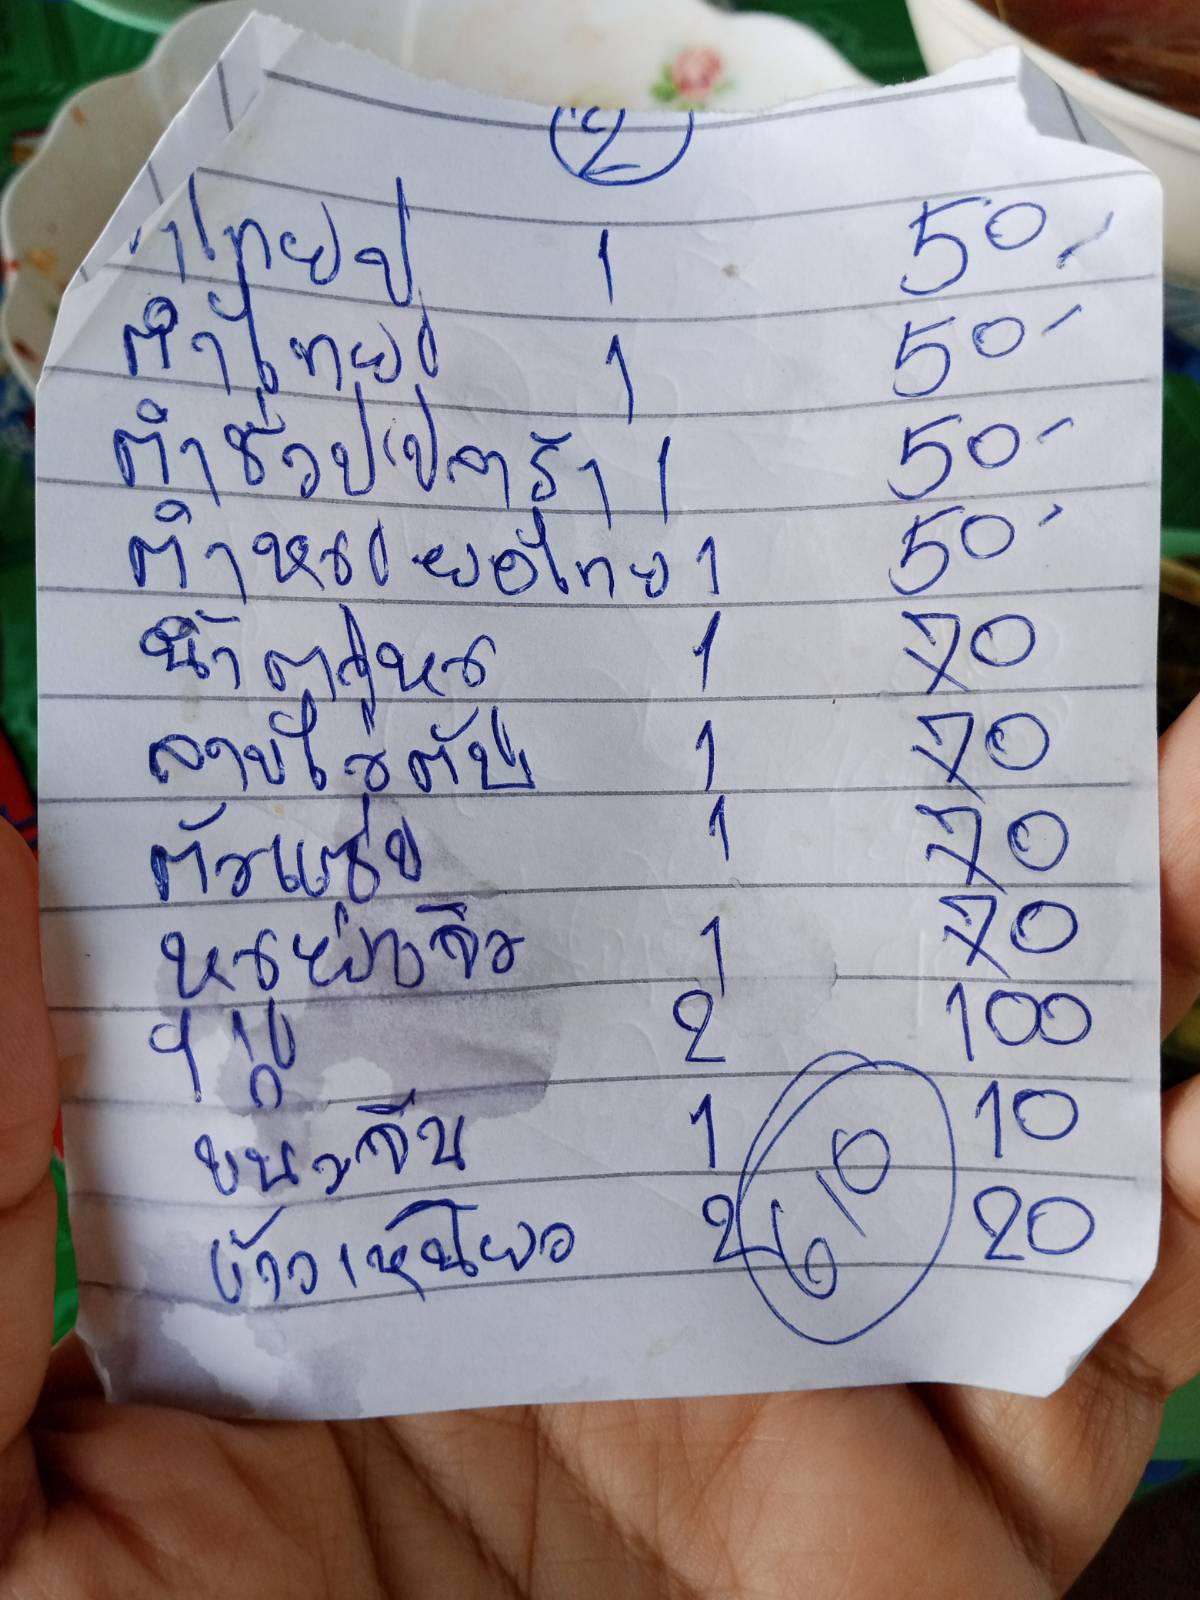 2
ำไทยปู 1 50-
ตำไทย 1 50-
ตำซั่วปูปลาร้า 1 50-
ตำหมูยอไทย 1 50-
น้ำตกหมู 1 70
ลาบไก่ตับ 1 70
ตับแซ่บ 1 70
หมูย่างจิ้ม 1 70
2 100
ขนมจีน 1 10
ข้าวเหนียว 2 20
610